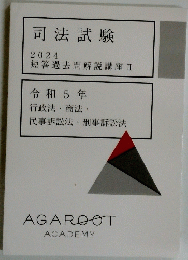 司法試験
2024
短答過去問解説講座Ⅱ
令和5年
行政法・商法・
民事訴訟法・刑事訴訟法
AGAROOT
ACADEMY